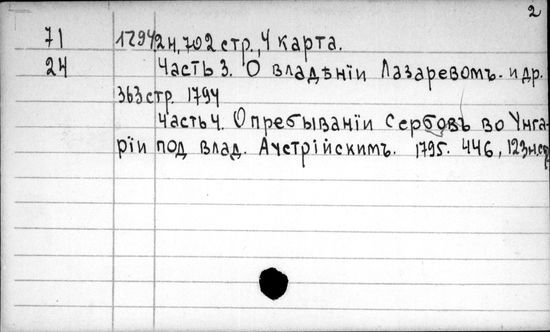 2
71 1794 2н, 702 стр., 4 карта.
24 Часть 3. О владѣніи Лазаревомъ. и др.
363 стр. 1794
Часть 4. О пребываніи Сербовъ во Унга-
ріи под влад. Аустрійскимъ. 1795. 446, 123 н.стр.